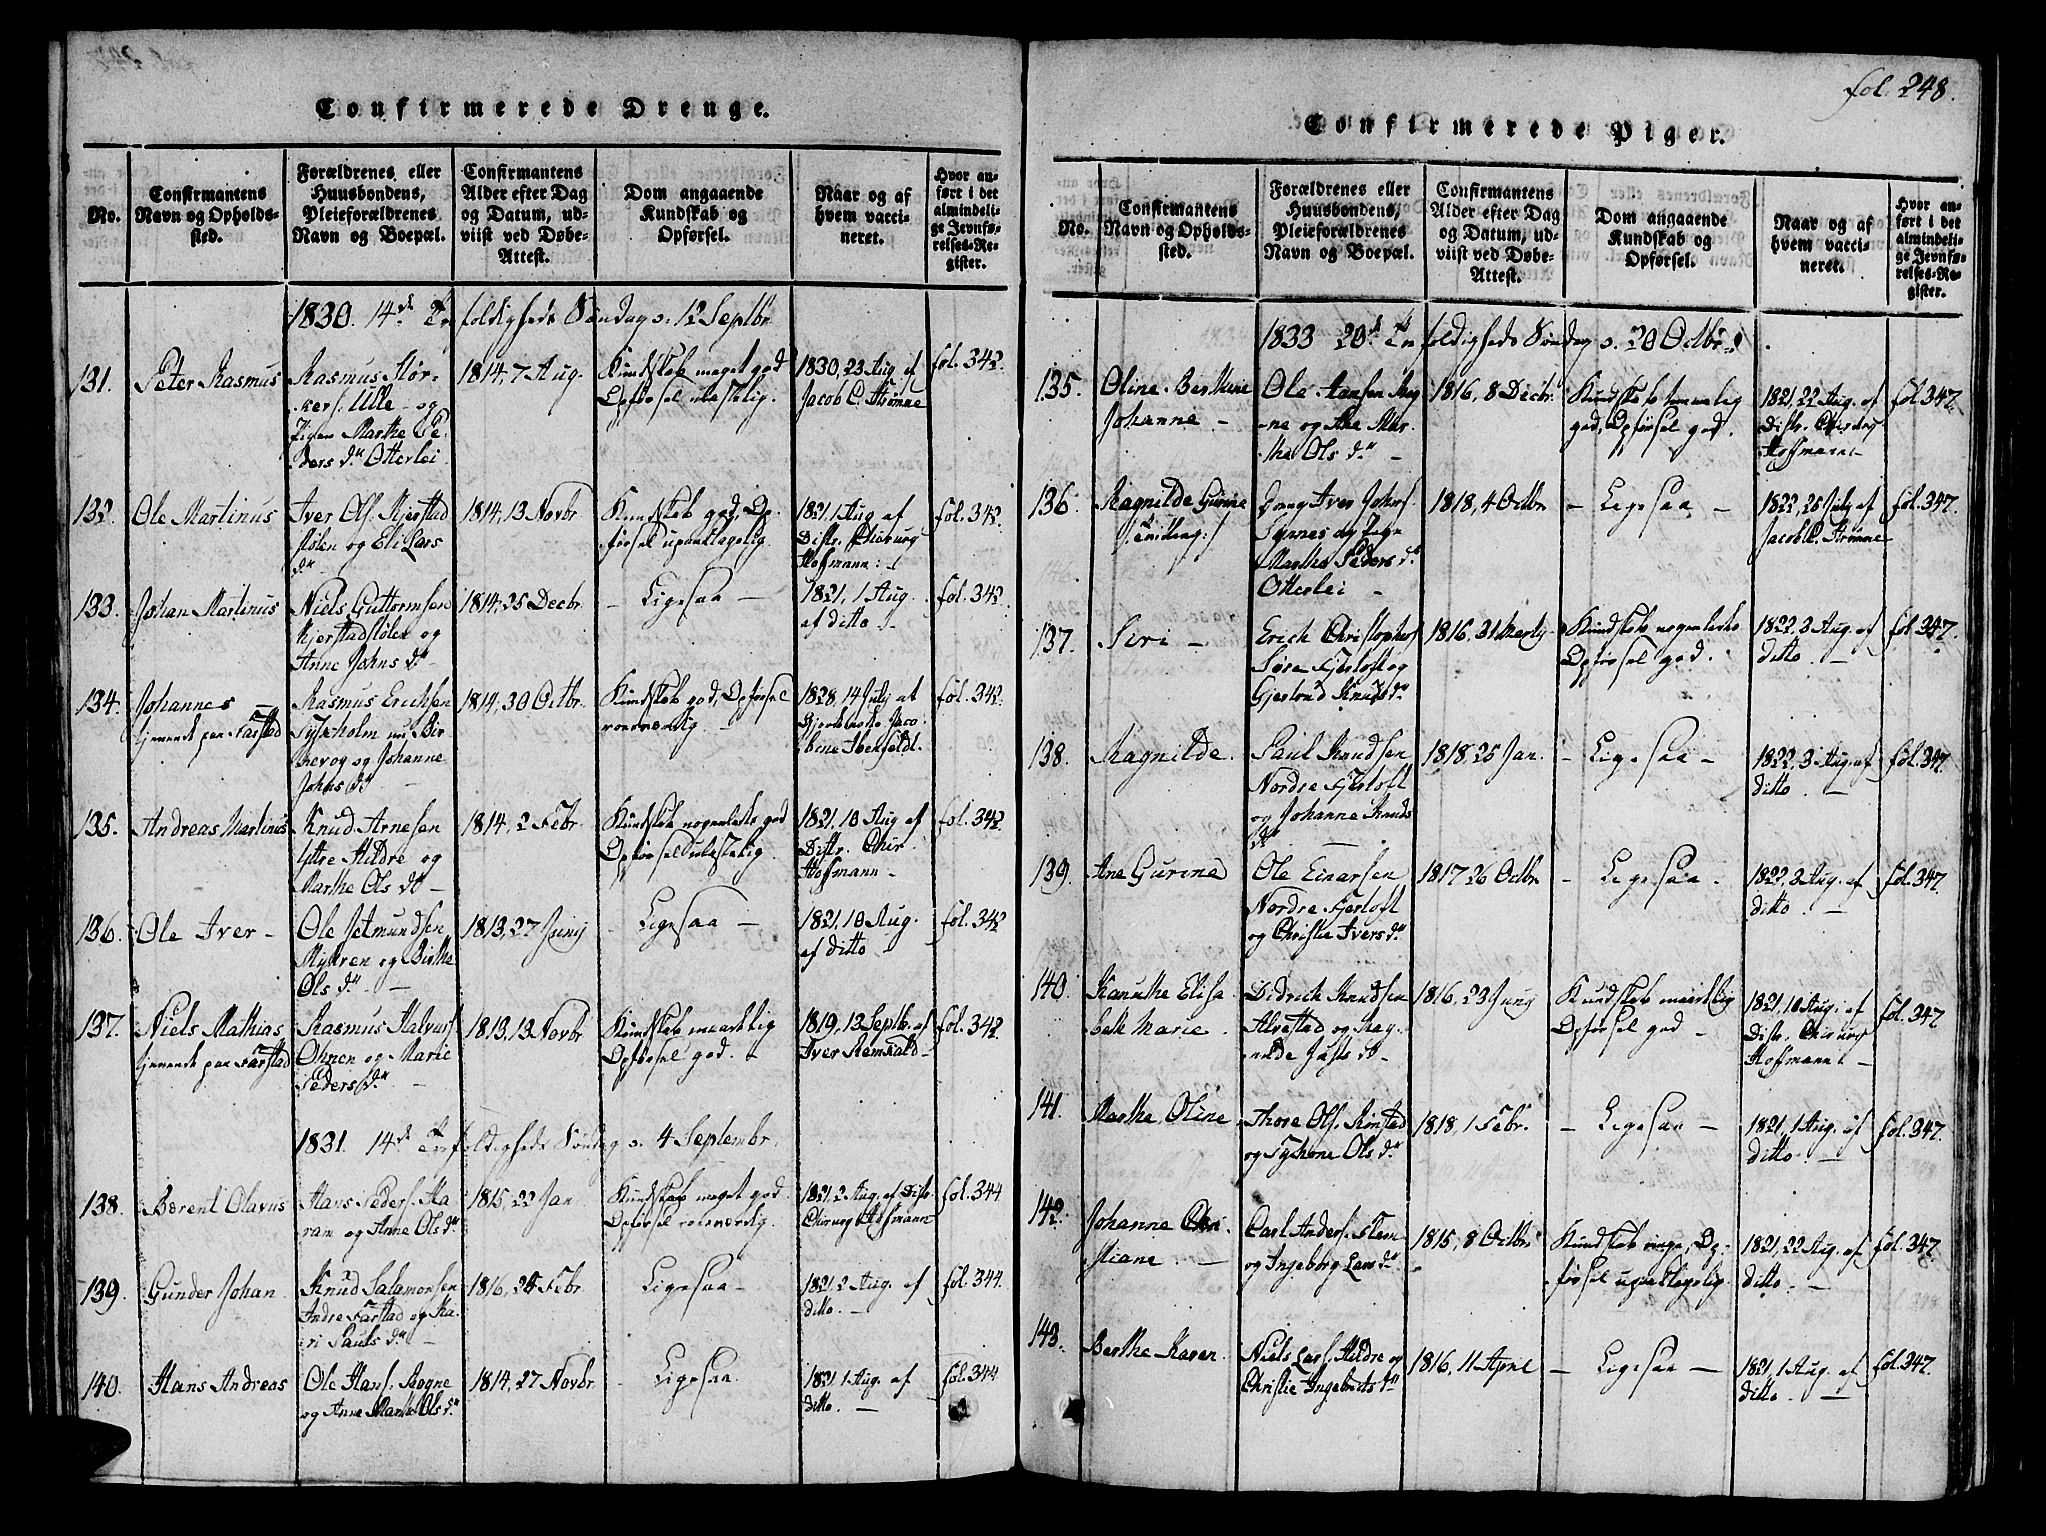 Confirmerede Drenge.
No.
Confirmantens Navn og Opholdssted.
Forældrenes eller Huusbondens, Pleieforældrenes Navn og Boepæl.
Confirmantens Alder efter Dag og Datum, udviist ved Døbe-Attest.
Dom angaaende Kundskab og Opførsel.
Naar og af hvem vaccineret.
Hvor anført i det almindelige Jevnførelses-Register.
1830. 14de Trefoldigheds Søndag d. 12 Septbr
131. Peter Rasmus
Rasmus Stor-
kers. Ulle og
Pigen Marthe Pe-
ders Dr Otterlei
1814, 7 Aug.
Kundskab meget god
Opførsel ulastelig.
1830, 23 Aug af
Jacob C. Strømme
fol. 342.
132. Ole Martinus
Iver Ols. Kjerstad
stølen og Eli Lars
dr
1814, 13 Novbr
Kundskab god, Op-
førsel upaaklagelig
1821, 1 Aug af
Distr. Chirurg
Hoffmann
fol. 342.
133. Johan Martinus
Niels Guttormsen
Kjerstadstølen og
Anne Johns dr
1814, 25 Decbr
- Ligesaa -
1821, 1 Aug.
af ditto -
fol. 342.
134. Johannes
tjenende paa Farstad
Rasmus Erichsen
Sykholm nu Bir-
kevog og Johanne
Johns dr
1814, 30 Octbr.
Kundskab god, Opførsel
roesværdig
1828, 14 July at
fol. 342.
135. Andreas Martinus
Knud Arnesen
Yttre Hildre og
Marthe Ols dr -
1814, 2 Febr.
Kundskab nogenledes god
Opførsel ulastelig
1821, 10 Aug af
Distr. Chir.
Hoffmann -
fol. 342
136. Ole Iver -
Ole Jetmundsen
Myhren og Birthe
Ols dr -
1813, 27 Junij
- Ligesaa -
1821, 10 Aug.
af ditto
fol. 342
137. Niels Mathias
tjenende paa Farstad
Rasmus Halvors.
Ohnen og Marie
Peders dr -
1813, 13 Novbr
Kundskab maadelig
Opførsel god. -
1819, 13 Septbr. af
Iver Remsald -
fol. 342
1831. 14de Trefoldigheds Søndag d. 4 Septembr.
138. Berent Olavus
Hans Peders. Ha-
ram og Anne Ols dr
1815, 22 Jan
Kundskab meget god
Opførsel roesværdig.
1821, 2 Aug. af Distr.
Chirurg Hoffmann
fol. 344
139. Gunder Johan
Knud Salamonsen
Andre Farstad og Ka-
ri Pauls dr -
1816, 24 Febr
Ligesaa -
1821, 2 Aug. af
ditto. -
fol. 344.
140. Hans Andreas
Ole Hans. Rogne
og Anne Marie Ols dr
1814, 27 Novbr.
- Ligesaa
1821 1 Aug. af
ditto. -
fol. 344
fol. 248.
Confirmerede Piger.
No.
Confirmantens Navn og Opholdssted.
Forældrenes eller Huusbondens, Pleieforældrenes Navn og Boepæl.
Confirmantens Alder efter Dag og Datum, udviist ved Døbe-Attest.
Dom angaaende Kundskab og Opførsel.
Naar og af hvem vaccineret.
Hvor anført i det almindelige Jevnførelses-Register.
1833 20de Trefoldigheds Søndag d. 20 Octbr.
135. Oline Berthine
Johanne -
Ole Hansen Rog-
ne og Ane Mar-
the Ols dr -
1816, 8 Decbr.
Kundskab temmelig
god, Opførsel god.
1821, 22 Aug. af
Distr. Chirurg
Hoffmann -
fol. 347.
136. Ragnilde Gurine
Ung Iver Johs.
og Pige
Marthe Peders dr
Otterlei -
1818, 4 Octbr
- Ligesaa -
1822, 25 July af
Jacob C. Strømme
fol. 347.
137. Siri -
Erich Christophers.
Søre Fjertoft og
Gjertrud Knuds dr
1816, 31 Marty
Kundskab nogenledes
Opførsel god.
1822, 3 Aug. af
ditto. -
fol. 347.
138. Ragnilde.
Paul Knudsen
Nordre Fjertoft
og Johanne Knuds
dr
1818, 25 Jan.
- Ligesaa -
1822, 3 Aug. af
ditto. -
fol. 347.
139. Ane Gurine
Ole Einarsen
Nordre Fjertoft
og Christie Ivers dr
1817 26 Octbr.
- Ligesaa.
1822, 3 Aug. af
ditto. -
fol. 347.
140. Hanuthe Elisa
beth Marie.
Didrich Knudsen
Alvestad og Rag-
nilde Justs dr
1816, 23 Juny
Kundskab maadelig
Opførsel god -
1821, 10 Aug. af
Distr. Chirurg
Hoffmann -
fol. 347
141. Marthe Oline
Thore Ols. Rønstad
og Sykene Ols dr
1818, 1 Febr.
- Ligesaa -
1821, 1 Aug. af
ditto. -
fol. 347.
142. Johanne Chri-
stiane. -
Carl Anders. Flem
og Ingeborg Lars dr
1815, 8 Octbr
Kundskab ringe, Op-
førsel upaaklagelig
1821, 22 Aug. af
ditto. -
fol. 347.
143. Berthe Karen
Niels Lars. Hildre og
Christie Ingebrets dr
1816, 11 April
- Ligesaa -
1821, 1 Aug. af
ditto -
fol. 347.